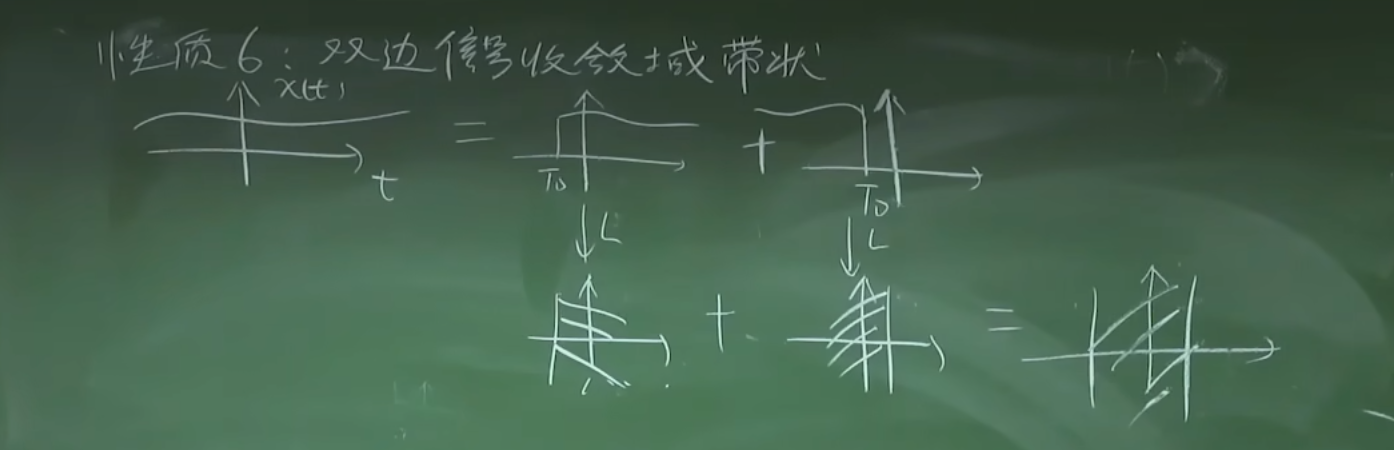 性质6:双边信号收敛域带状
x(t)
= +
t T0 T0
L L
+ =